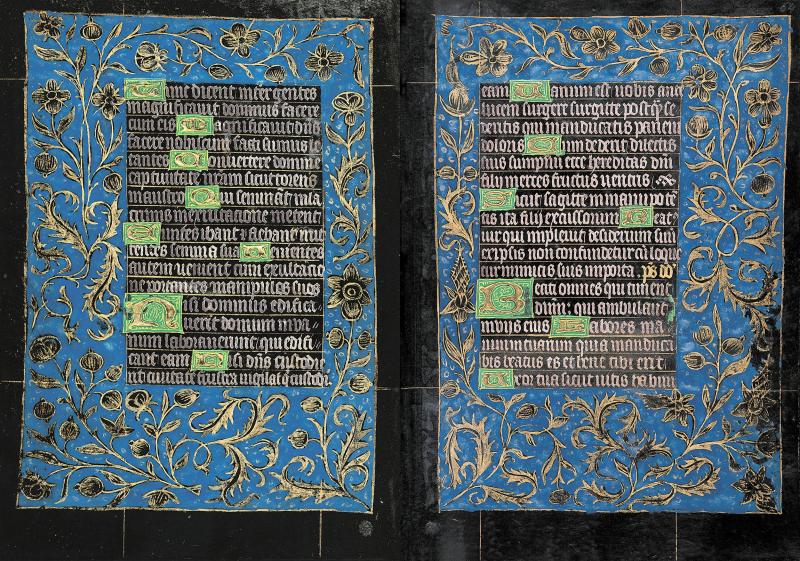 Tunc dicent inter gentes
magnificauit dominus facere
cum eis Magnificauit dns
facere nobiscum facti sumus le
tantes Conuertere domine
captiuitatem nostram sicut torrens
in austro Qui seminant in la
crimis in exultatione metent
Euntes ibant et flebant mit
tentes semina sua Uenientes
autem uenient cum exultatio
ne portantes manipulos suos
Nisi dominus edifica
uerit domum inua
num laborauerunt qui edifi
cant eam Nisi dns custodie
rit ciuitatem frustra uigilat q custodit
eam Uanum est uobis ante
lucem surgere surgite postq̃ se
deritis qui manducatis panem
doloris Cum dederit dilectis
suis sompnum ecce hereditas dni
filij merces fructus uentris
Sicut sagitte in manu poten
tis ita filij excussorum Beat
uir qui impleuit desiderium suu
ex ipsis non confundetur cu loque
tur inimicis suis in porta . ps dd
Beati omnes qui timent
dnm: qui ambulant
in uijs eius Labores ma
nuum tuarum quia manduca
bis beatus es et bene tibi erit
Uxor tua sicut uitis habun